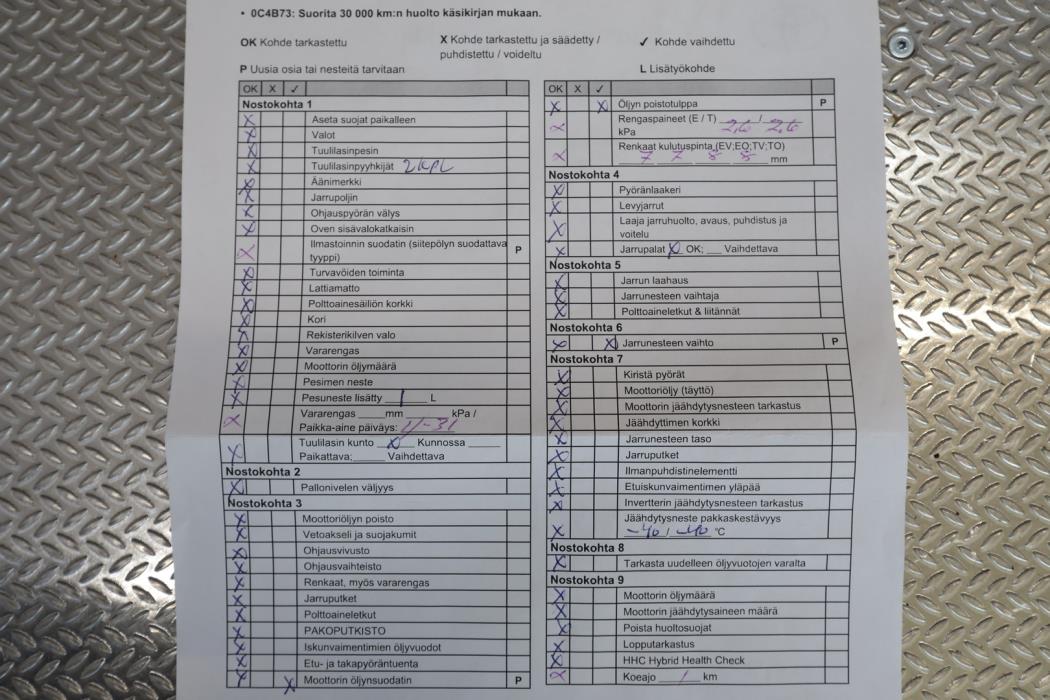 • 0C4B73: Suorita 30 000 km:n huolto käsikirjan mukaan.
OK Kohde tarkastettu
X Kohde tarkastettu ja säädetty /
puhdistettu / voideltu
✓ Kohde vaihdettu
P Uusia osia tai nesteitä tarvitaan
L Lisätyökohde
OK X ✓
Nostokohta 1
X Aseta suojat paikalleen
X Valot
X Tuulilasinpesin
X Tuulilasinpyyhkijät 2 KPL
X Äänimerkki
X Jarrupoljin
X Ohjauspyörän välys
X Oven sisävalokatkaisin
X Ilmastoinnin suodatin (siitepölyn suodattava P
tyyppi)
X Turvavöiden toiminta
X Lattiamatto
X Polttoainesäiliön korkki
X Kori
X Rekisterikilven valo
X Vararengas
X Moottorin öljymäärä
X Pesimen neste
X Pesuneste lisätty 1 L
X Vararengas ____mm ____ kPa /
Paikka-aine päiväys: 11-31
X Tuulilasin kunto X Kunnossa ____
Paikattava;____ Vaihdettava
Nostokohta 2
X Pallonivelen väljyys
Nostokohta 3
X Moottoriöljyn poisto
X Vetoakseli ja suojakumit
X Ohjausvivusto
X Ohjausvaihteisto
X Renkaat, myös vararengas
X Jarruputket
X Polttoaineletkut
X PAKOPUTKISTO
X Iskunvaimentimien öljyvuodot
X Etu- ja takapyöräntuenta
X Moottorin öljynsuodatin P
OK X ✓
X X Öljyn poistotulppa P
X Rengaspaineet (E / T) 2,6 / 2,6
kPa
X Renkaat kulutuspinta (EV;EO;TV;TO)
7 7 8 8 mm
Nostokohta 4
X Pyöränlaakeri
X Levyjarrut
X Laaja jarruhuolto, avaus, puhdistus ja
voitelu
X Jarrupalat X OK; __ Vaihdettava
Nostokohta 5
X Jarrun laahaus
X Jarrunesteen vaihtaja
X Polttoaineletkut & liitännät
Nostokohta 6
X X Jarrunesteen vaihto P
Nostokohta 7
X Kiristä pyörät
X Moottoriöljy (täyttö)
X Moottorin jäähdytysnesteen tarkastus
X Jäähdyttimen korkki
X Jarrunesteen taso
X Jarruputket
X Ilmanpuhdistinelementti
X Etuiskunvaimentimen yläpää
X Invertterin jäähdytysnesteen tarkastus
X Jäähdytysneste pakkaskestävyys
-40 / -40 °C
Nostokohta 8
X Tarkasta uudelleen öljyvuotojen varalta
Nostokohta 9
X Moottorin öljymäärä
X Moottorin jäähdytysaineen määrä
X Poista huoltosuojat
X Lopputarkastus
X HHC Hybrid Health Check
X Koeajo 1 km